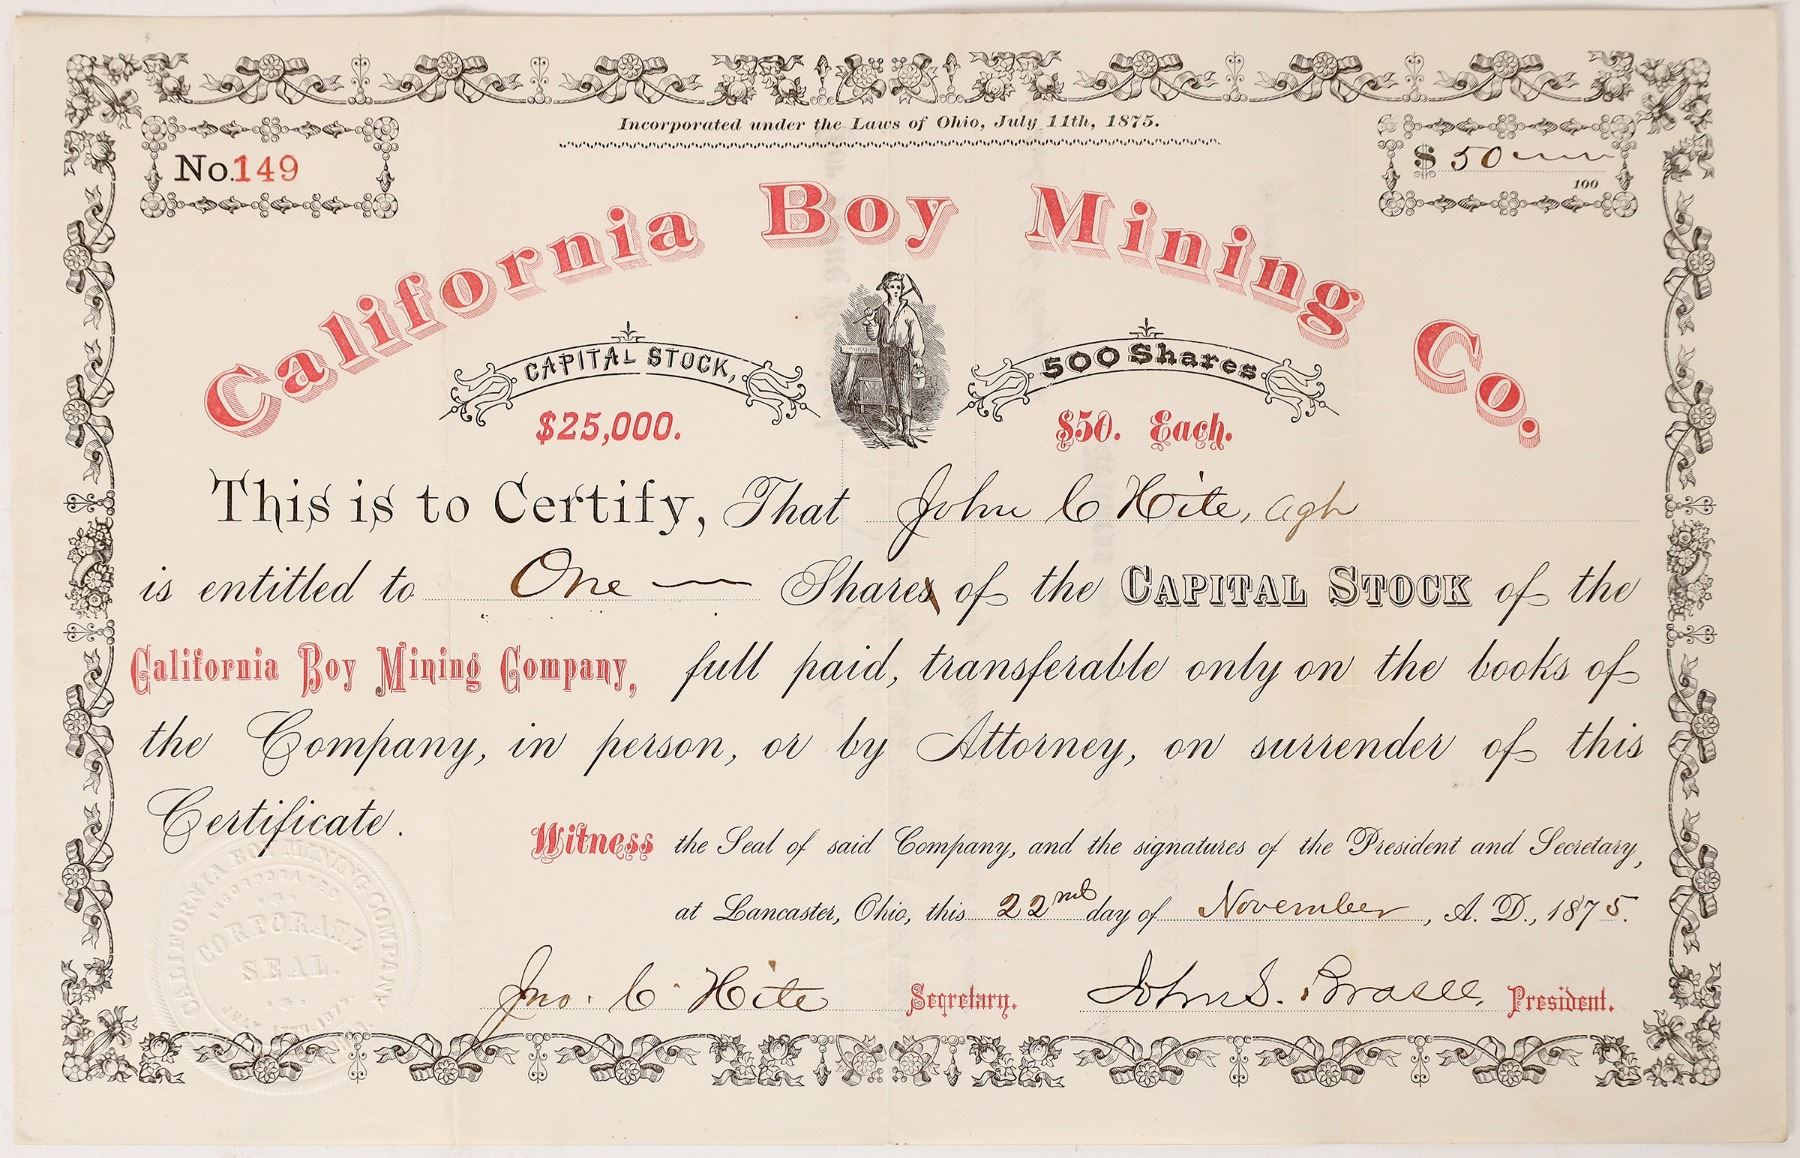 Incorporated under the Laws of Ohio, July 11th, 1875.
No. 149
$ 50
100
California Boy Mining Co.
CAPITAL STOCK,
500 Shares
$25,000.
$50. Each.
This is to Certify, That John C Hite, agt
is entitled to One Shares of the CAPITAL STOCK of the
California Boy Mining Company, full paid, transferable only on the books of
the Company, in person, or by Attorney, on surrender of this
Certificate.
Witness the Seal of said Company, and the signatures of the President and Secretary,
at Lancaster, Ohio, this 22nd day of November, A. D., 1875.
Jno. C. Hite Secretary. John S. Brasee, President.
CALIFORNIA BOY MINING COMPANY
INCORPORATED
CORPORATE
SEAL.